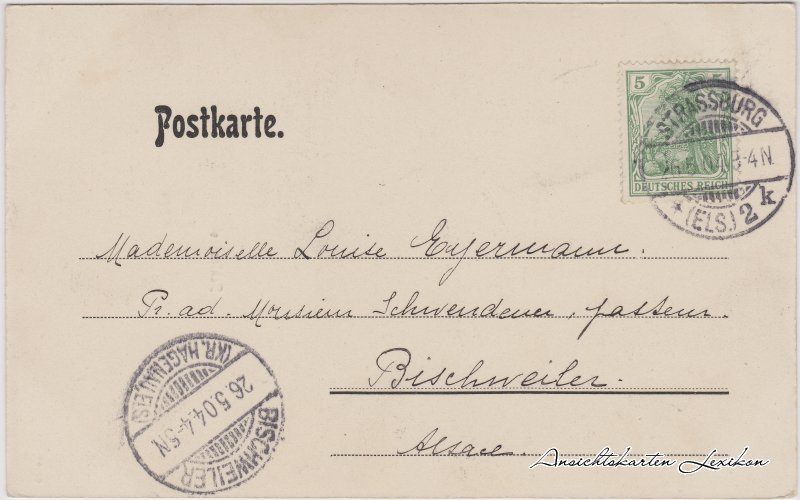 Postkarte.
5 5
DEUTSCHES REICH
STRASSBURG
3-4N
* (ELS.) 2 k
Mademoiselle Louise Eyermann.
Pr. ad. Monsieur Schwendener, pasteur.
Bischweiler.
Alsace.
BISCHWEILER
26.5.04.4-5N
(KR. HAGENAU ELS)
Ansichtskarten Lexikon